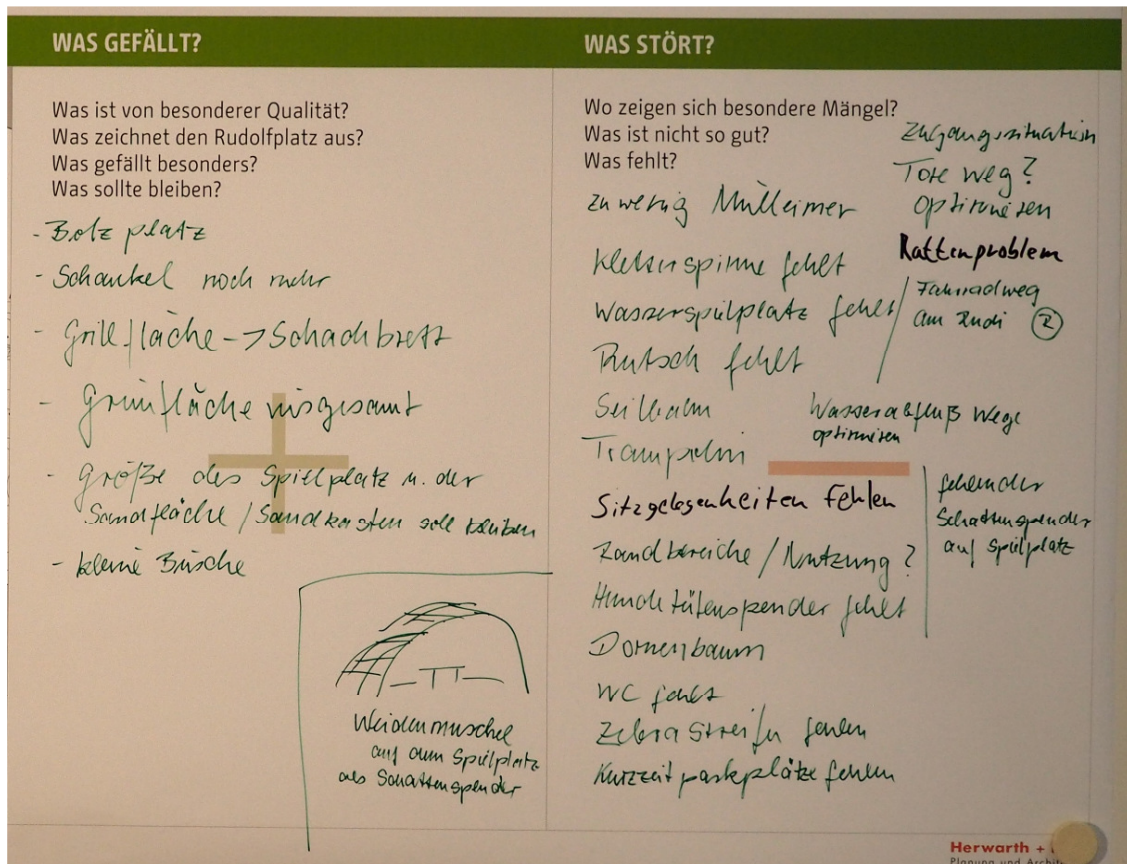 WAS GEFÄLLT?
Was ist von besonderer Qualität?
Was zeichnet den Rudolfplatz aus?
Was gefällt besonders?
Was sollte bleiben?
- Bolzplatz
- Schaukel noch mehr
- Grillfläche -> Schachbrett
- Grünfläche insgesamt
- Größe des Spielplatz u. der
Sandfläche / Sandkasten soll bleiben
- kleine Büsche
Weidenmuschel
auf dem Spielplatz
als Schattenspender
WAS STÖRT?
Wo zeigen sich besondere Mängel?
Was ist nicht so gut?
Was fehlt?
zu wenig Mülleimer
Kletterspinne fehlt
Wasserspielplatz fehlt
Rutsch fehlt
Seilbahn
Trampolin
Sitzgelegenheiten fehlen
Randbereiche / Nutzung?
Hundetütenspender fehlt
Dornenbaum
WC fehlt
Zebrastreifen fehlen
Kurzzeitparkplätze fehlen
Zugangssituation
Tore weg?
optimieren
Rattenproblem
Fahrradweg
am Rudi
Wasserabfluß Wege
optimieren
fehlender
Schattenspender
auf Spielplatz
Herwarth +